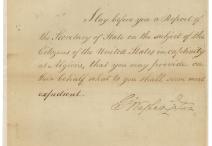 I lay before you a Report of
the Secretary of State on the subject of the
Citizens of the United States in captivity
at Algiers, that you may provide on
their behalf what to you shall seem most
expedient.
G Washington